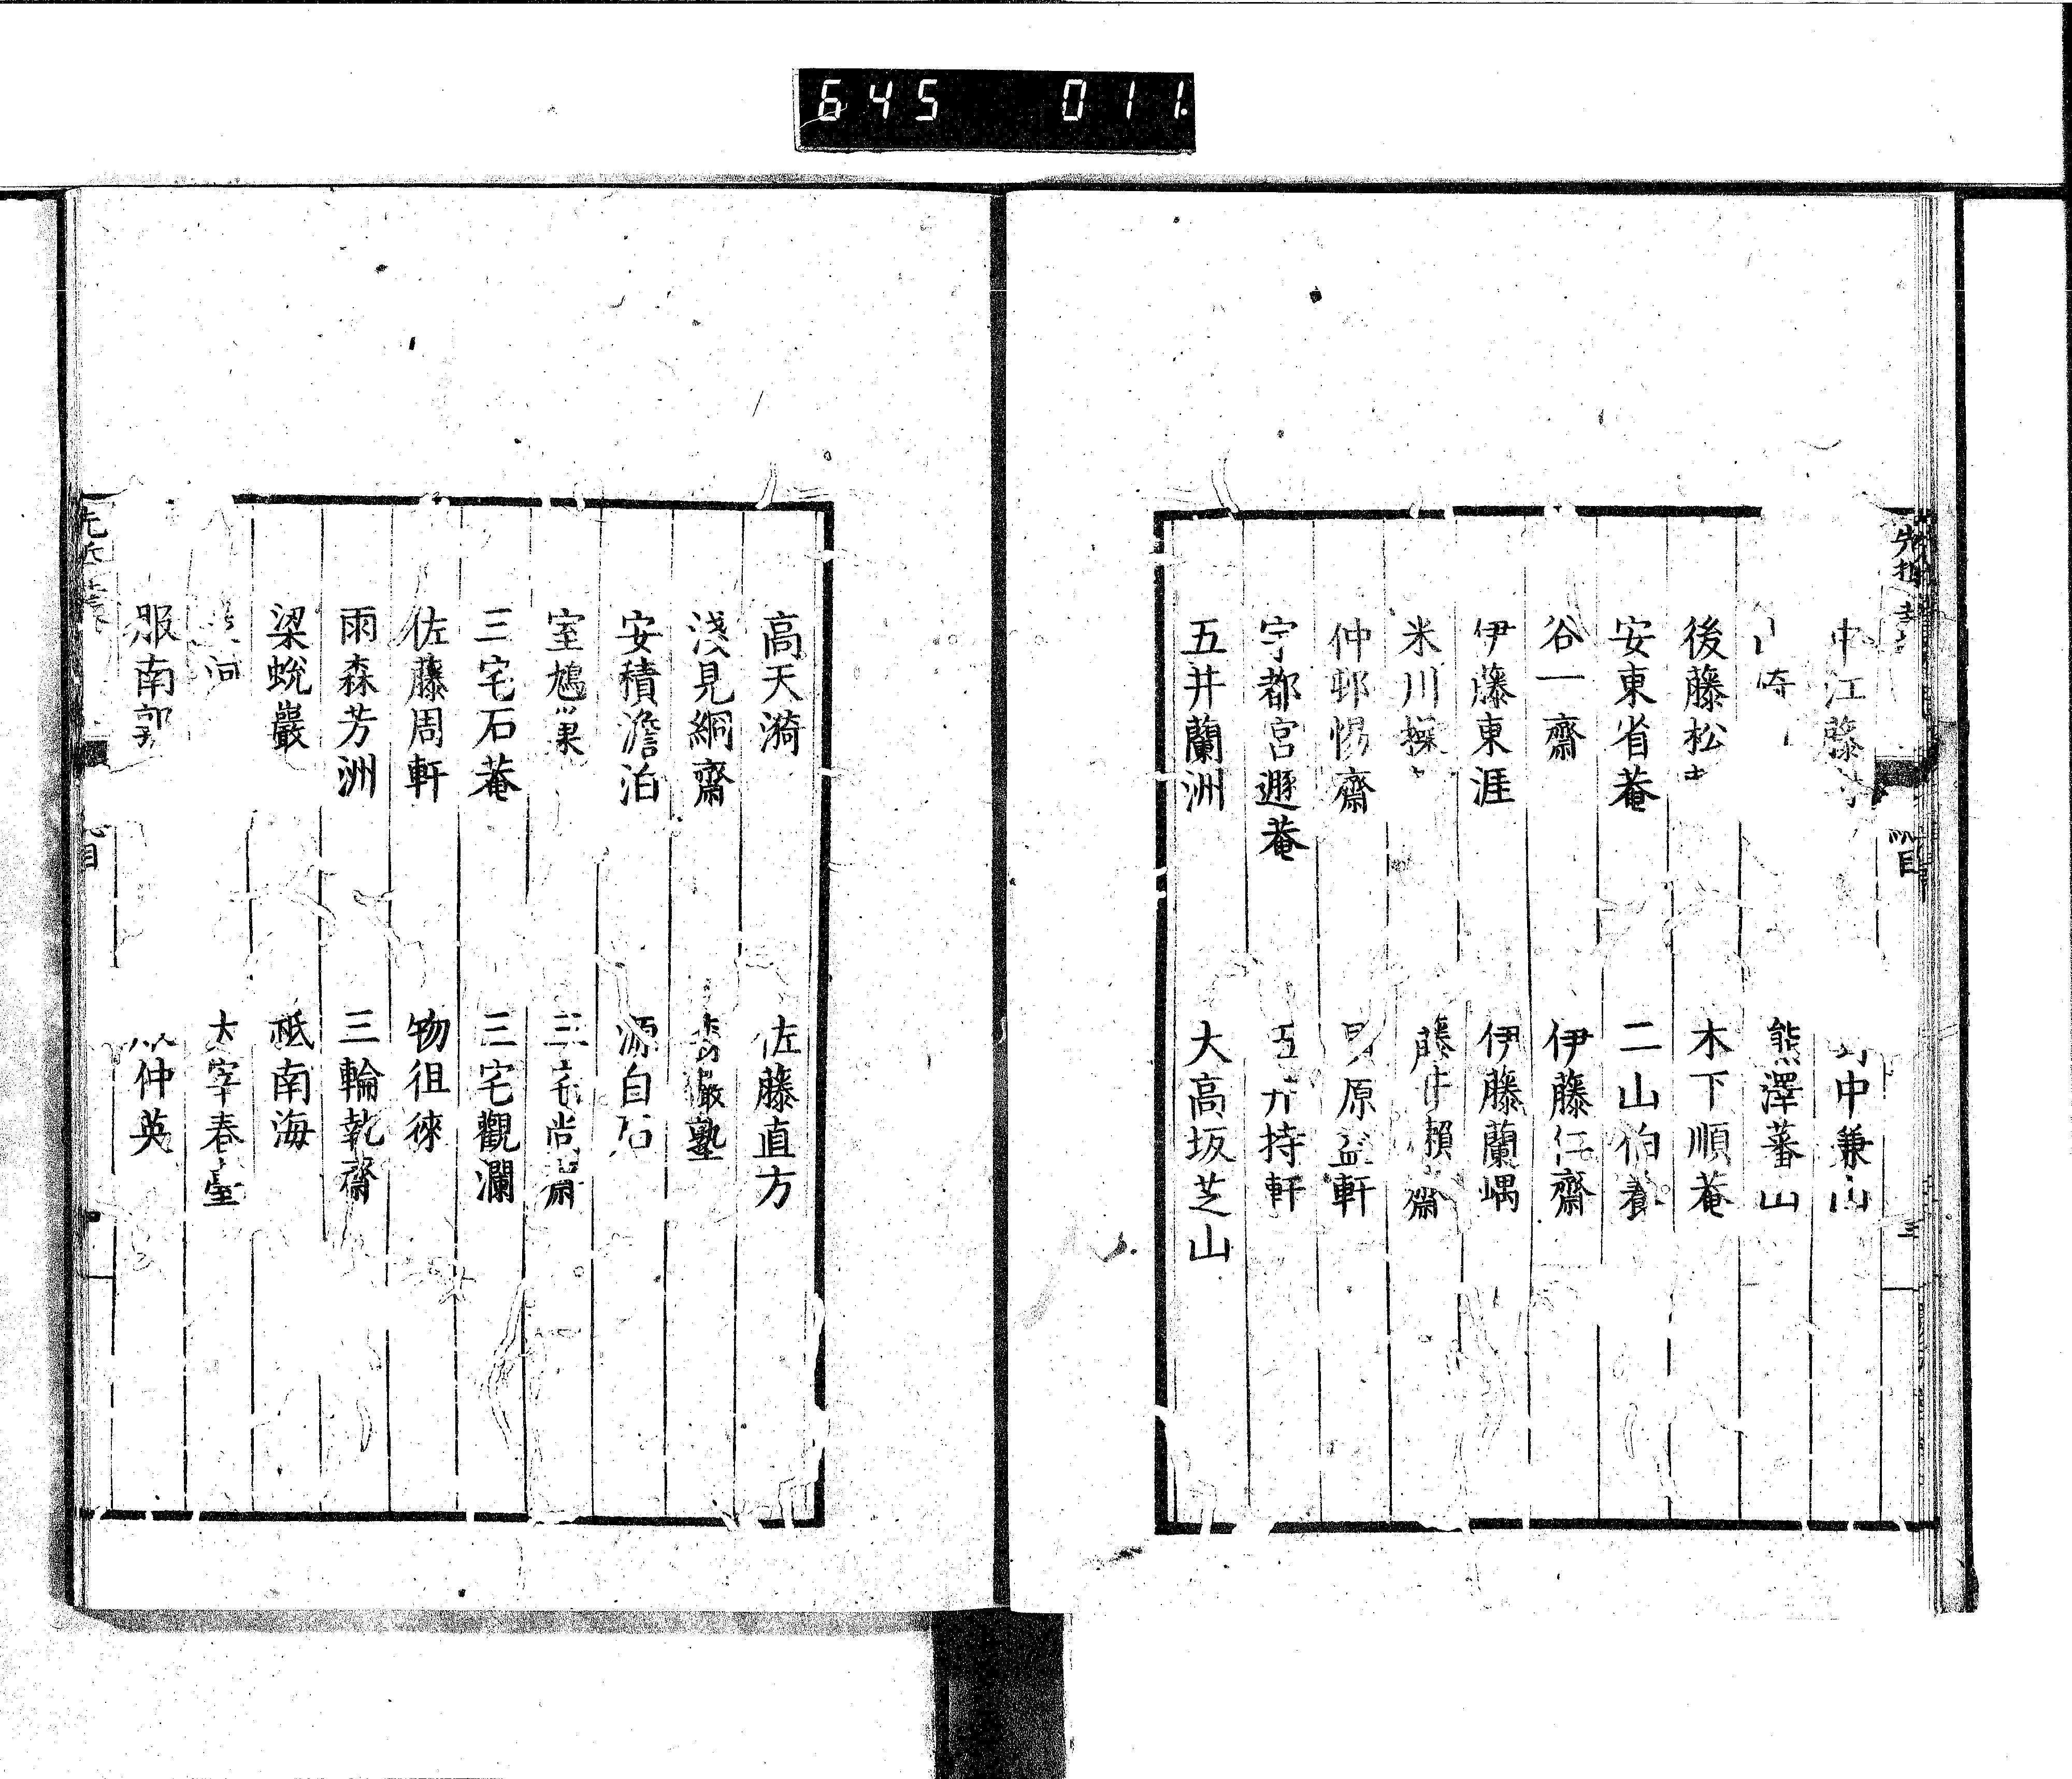 645 011
中江藤
中兼山
熊澤蕃山
後藤松
木下順菴
安東省菴
二山伯養
谷一齋
伊藤仁齋
伊藤東涯
伊藤蘭嵎
米川操
藤井懶齋
仲邨惕齋
原益軒
宇都宮遯菴
五井持軒
五井蘭洲
大高坂芝山
高天漪
佐藤直方
淺見絅齋
巖塾
安積澹泊
源白石
室鳩巢
三宅尚齋
三宅石菴
三宅觀瀾
佐藤周軒
物徂徠
雨森芳洲
三輪執齋
梁蛻巖
祗南海
太宰春臺
服南郭
仲英